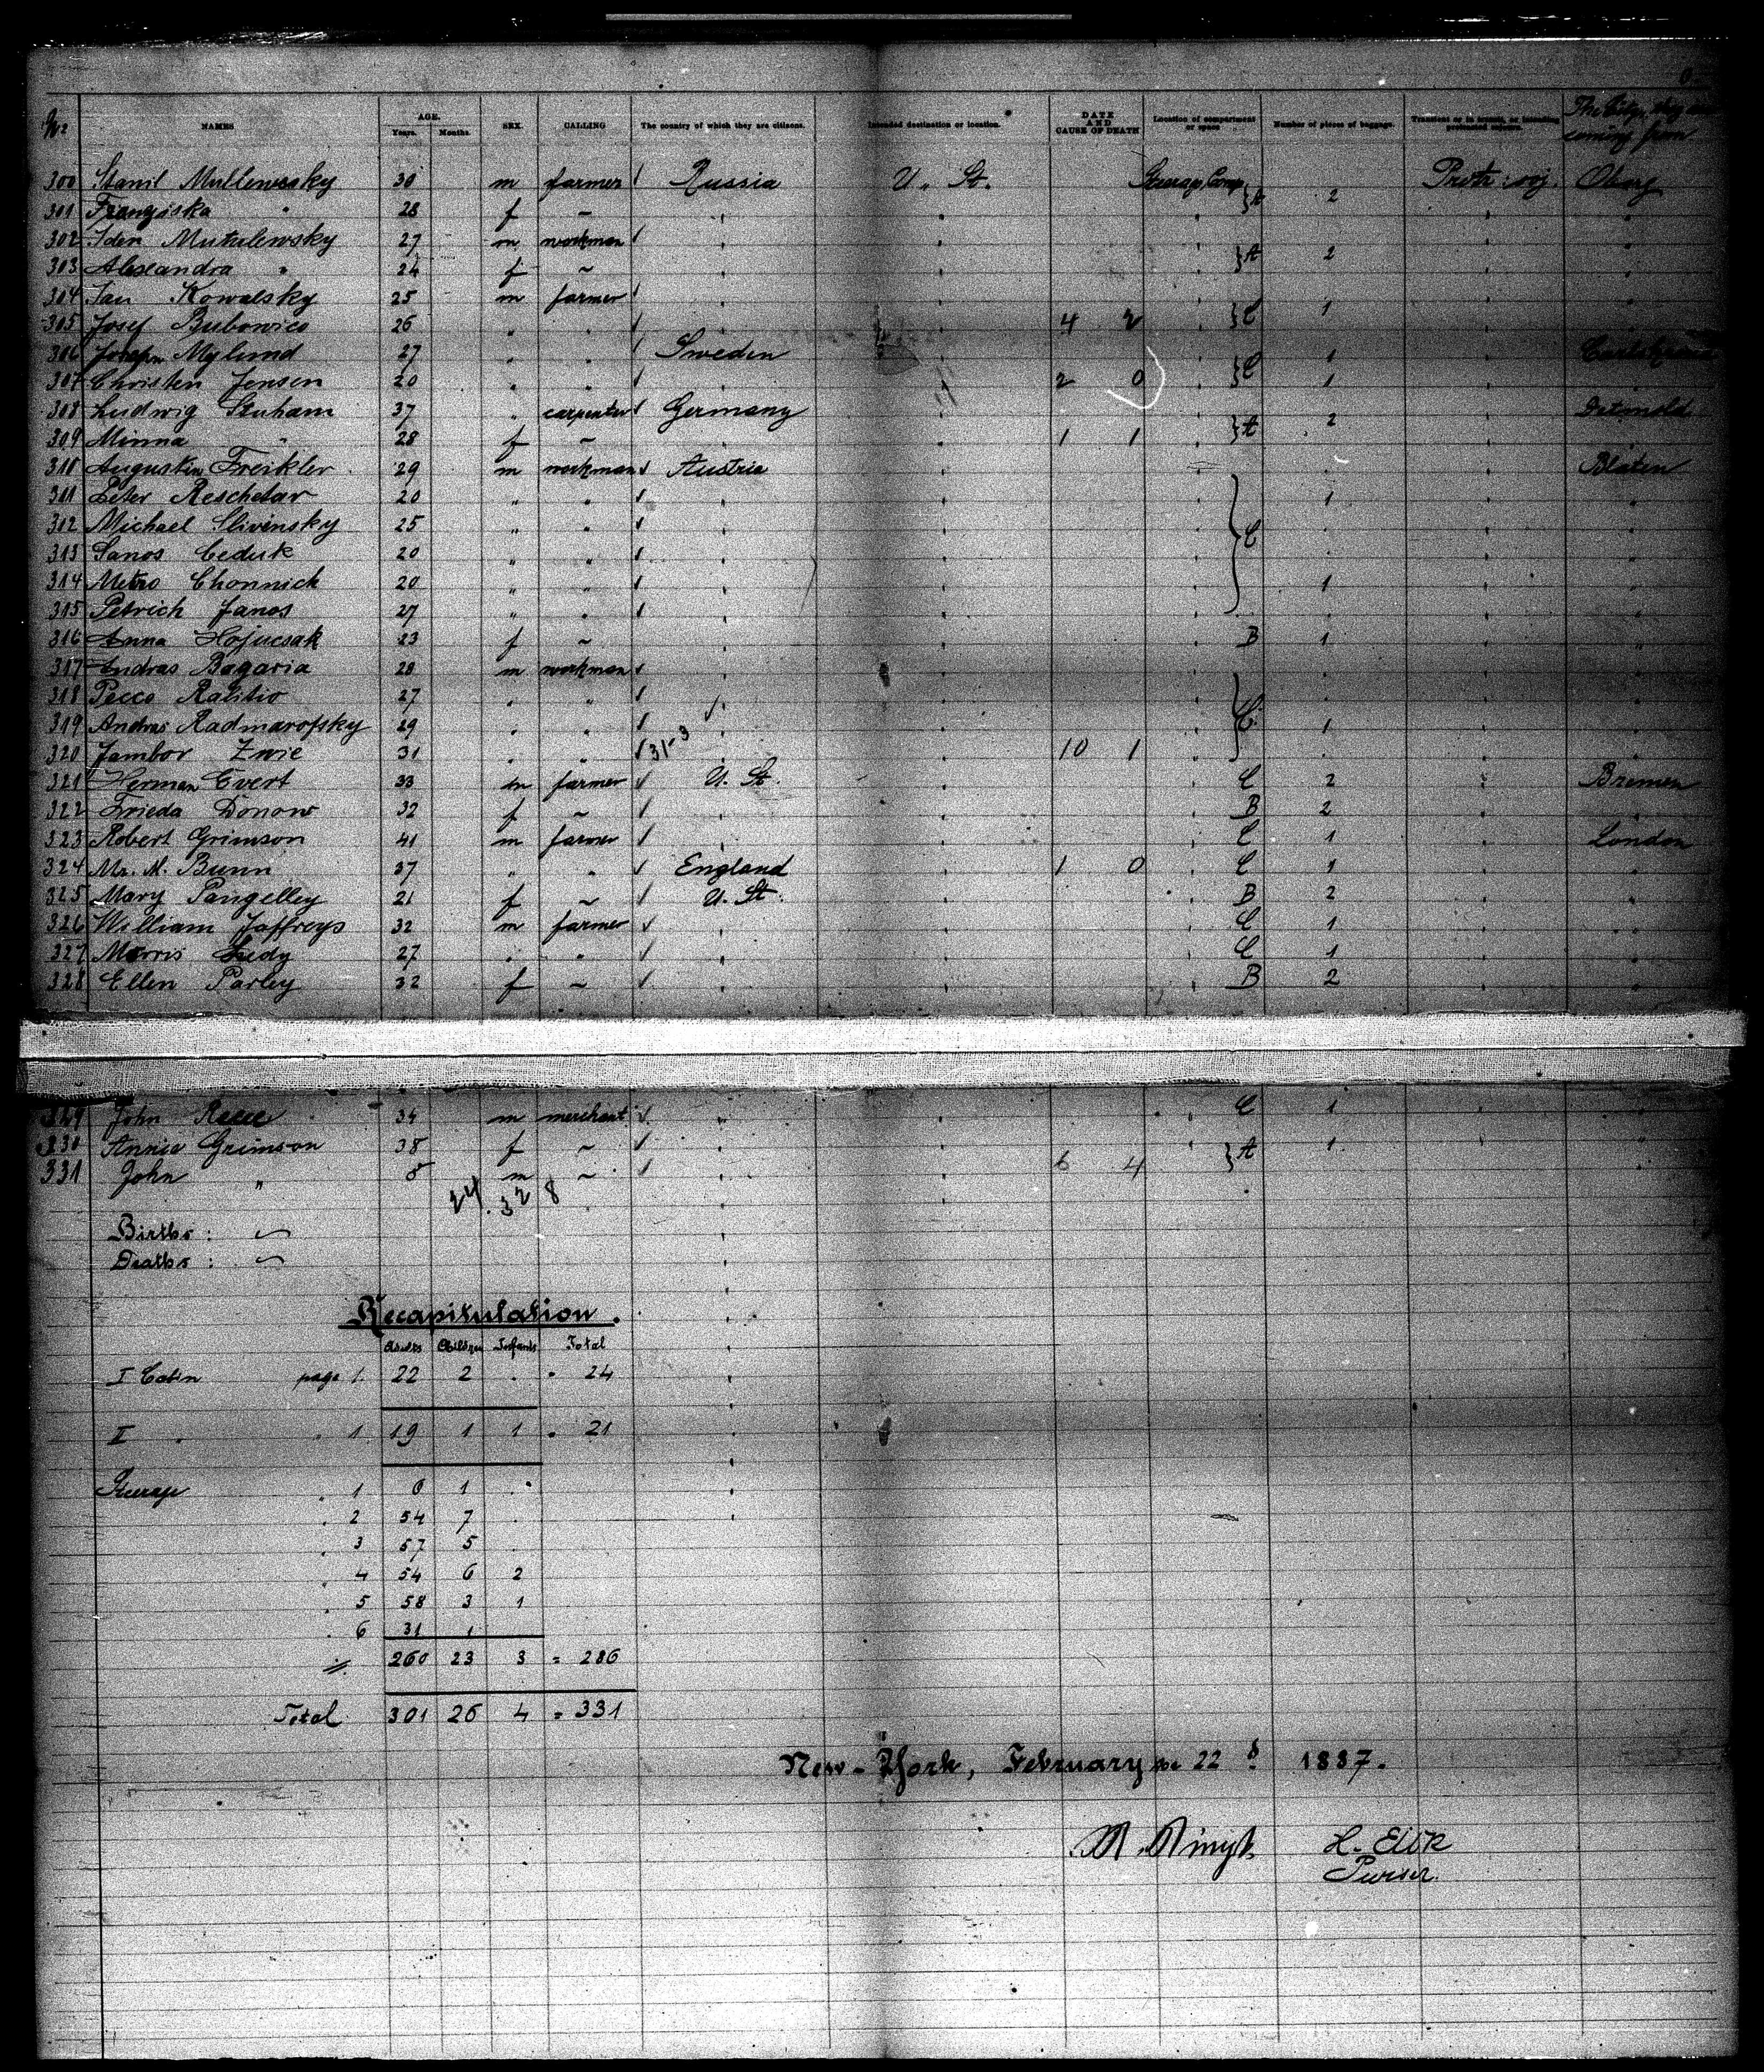 No NAMES AGE. Years. Months. SEX. CALLING The country of which they are citizens. Intended destination or location. DATE AND CAUSE OF DEATH Location of compartment or space Number of pieces of baggage. Transient or in transit, or intending protracted sojourn. The City they are coming from
300 Stanil 30 m farmer Russia U. St. Steerage Comp. 2 Protr. soj.
301 Franziska " 28 f ~ A
302 Iden Mutulewsky 27 m workman
303 Alexandra " 24 f ~ A 2
304 Jan Kowalsky 25 m farmer
305 Josef Bubowico 26 " " 4 2 C 1
306 Mylund 27 " " Sweden 1
307 Christen Jensen 20 " " 2 0 C 1
308 Ludwig Stuham 37 " carpenter Germany 2 Detmold
309 Minna " 28 f ~ 1 1 A
310 Augustin Freikler 29 m workman Austria Blaten
311 Peter Reschetar 20 " " 1
312 Michael Slivinsky 25 " "
313 Janos Ceduk 20 " " C
314 Mitro Chonnick 20 " " 1
315 Petrich Janos 27 " "
316 Anna Hojucsak 23 f ~ B 1
317 Andras Bagaria 28 m workman
318 Pecco Ralitio 27 " "
319 Andras Radmarofsky 29 " " C 1
320 Jambor Zwie 31 " " 31-3 10 1
321 Herman Evert 33 m farmer U. St. C 2 Bremen
322 Frieda Donow 32 f ~ B 2
323 Robert Grimson 41 m farmer C 1 London
324 Mr. M. Bunn 37 " " England 1 0 C 1
325 Mary Pangelley 21 f ~ U. St. B 2
326 William Jaffreys 32 m farmer C 1
327 Morris Ledy 27 " " C 1
328 Ellen Parley 32 f ~ B 2
329 John Reese 34 m merchant C 1
330 Annie Grimson 38 f ~ A 1
331 John " 8 m ~ 6 4
24. 328
Births : ~
Deaths : ~
Recapitulation.
Adults Children Infants Total
I Cabin page 1. 22 2 . = 24
II " " 1 19 1 1 = 21
Steerage " 1 6 1 .
" 2 54 7 .
" 3 57 5
" 4 54 6 2
" 5 58 3 1
" 6 31 1
260 23 3 = 286
Total 301 26 4 = 331
New-York, February 22d 1887.
H. Eilk
Purser.